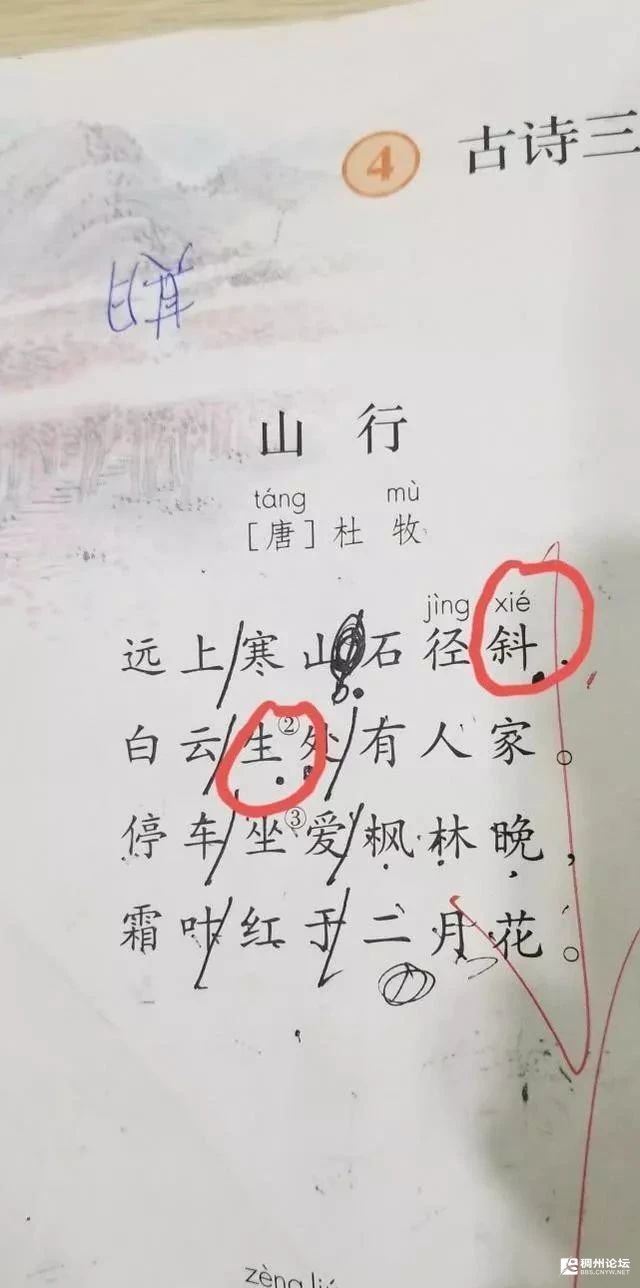 4 古诗三
山行
táng mù
[唐]杜牧
jìng xié
远上寒山石径斜
白云生②处有人家。
停车坐③爱枫林晚，
霜叶红于二月花。
zèng liú
稠州论坛
BBS.CNYW.NET